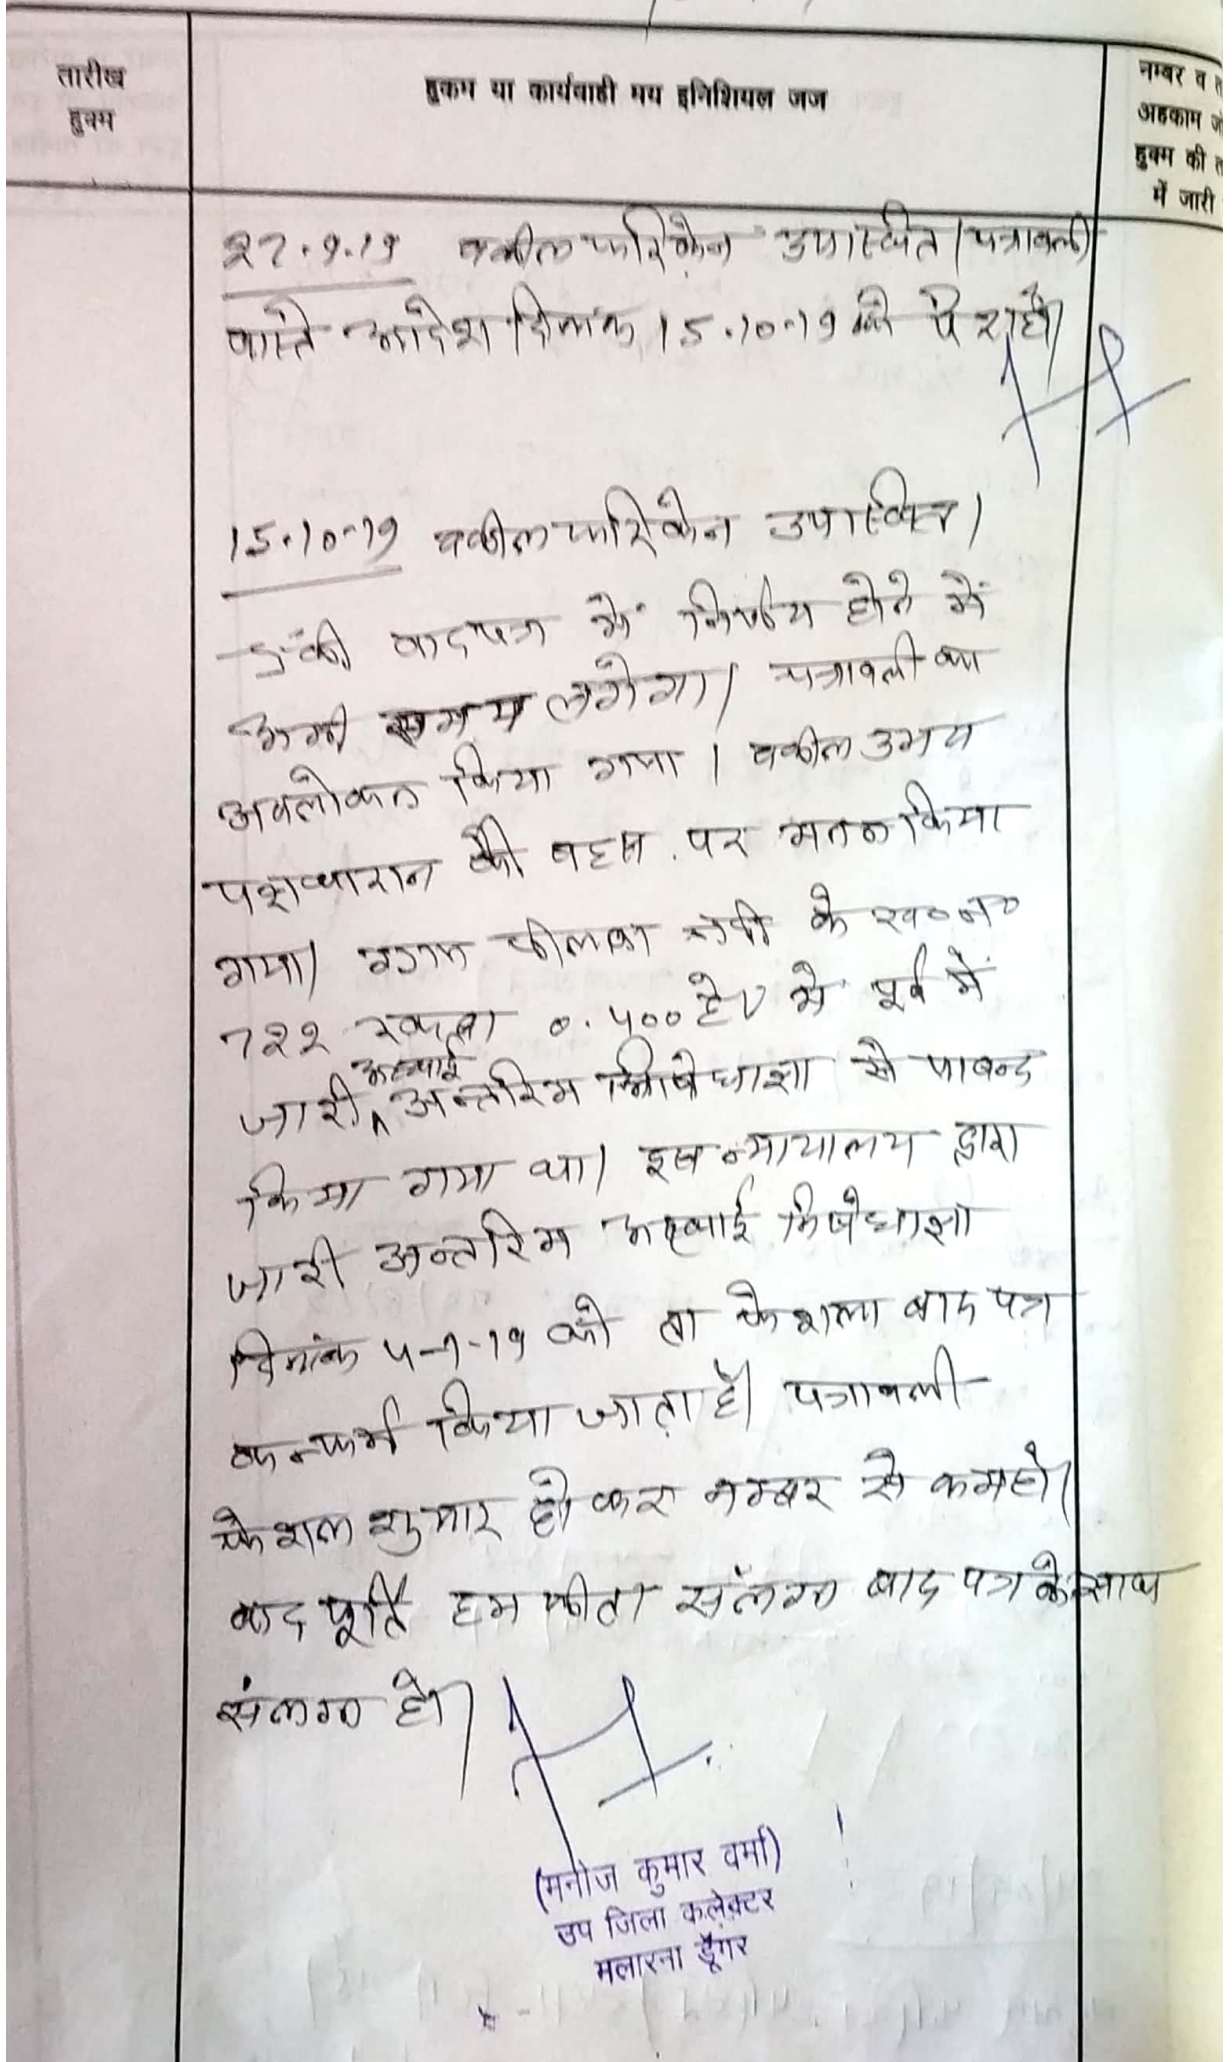 तारीख
हुक्म
हुकम या कार्यवाही मय इनिशियल जज
नम्बर व
अहकाम
हुक्म की
में जारी
27.9.19 वकील फरिकेन उपस्थित। पत्रावली
वास्ते आदेश दिनांक 15.10.19 को पेश हो।
15.10-19 वकील फरिकेन उपस्थित।
वादपत्र में निर्णय होने में
अभी समय लगेगा। पत्रावली का
अवलोकन किया गया। वकील उभय
पक्षकारान की बहस पर मनन किया
गया। ग्राम के ख०न०
722 रकबा 0.400 है० में पूर्व में
जारी अस्थाई अन्तरिम निषेधाज्ञा से पाबन्द
किया गया था। इस न्यायालय द्वारा
जारी अन्तरिम अस्थाई निषेधाज्ञा
दिनांक 4-1-19 को ता फेशला वाद पत्र
कन्फर्म किया जाता है। पत्रावली
फेशल शुमार होकर नम्बर से कम हो।
बाद पूर्ति हम फीता संलग्न वाद पत्र के साथ
संलग्न हो।
(मनोज कुमार वर्मा)
उप जिला कलेक्टर
मलारना डूँगर